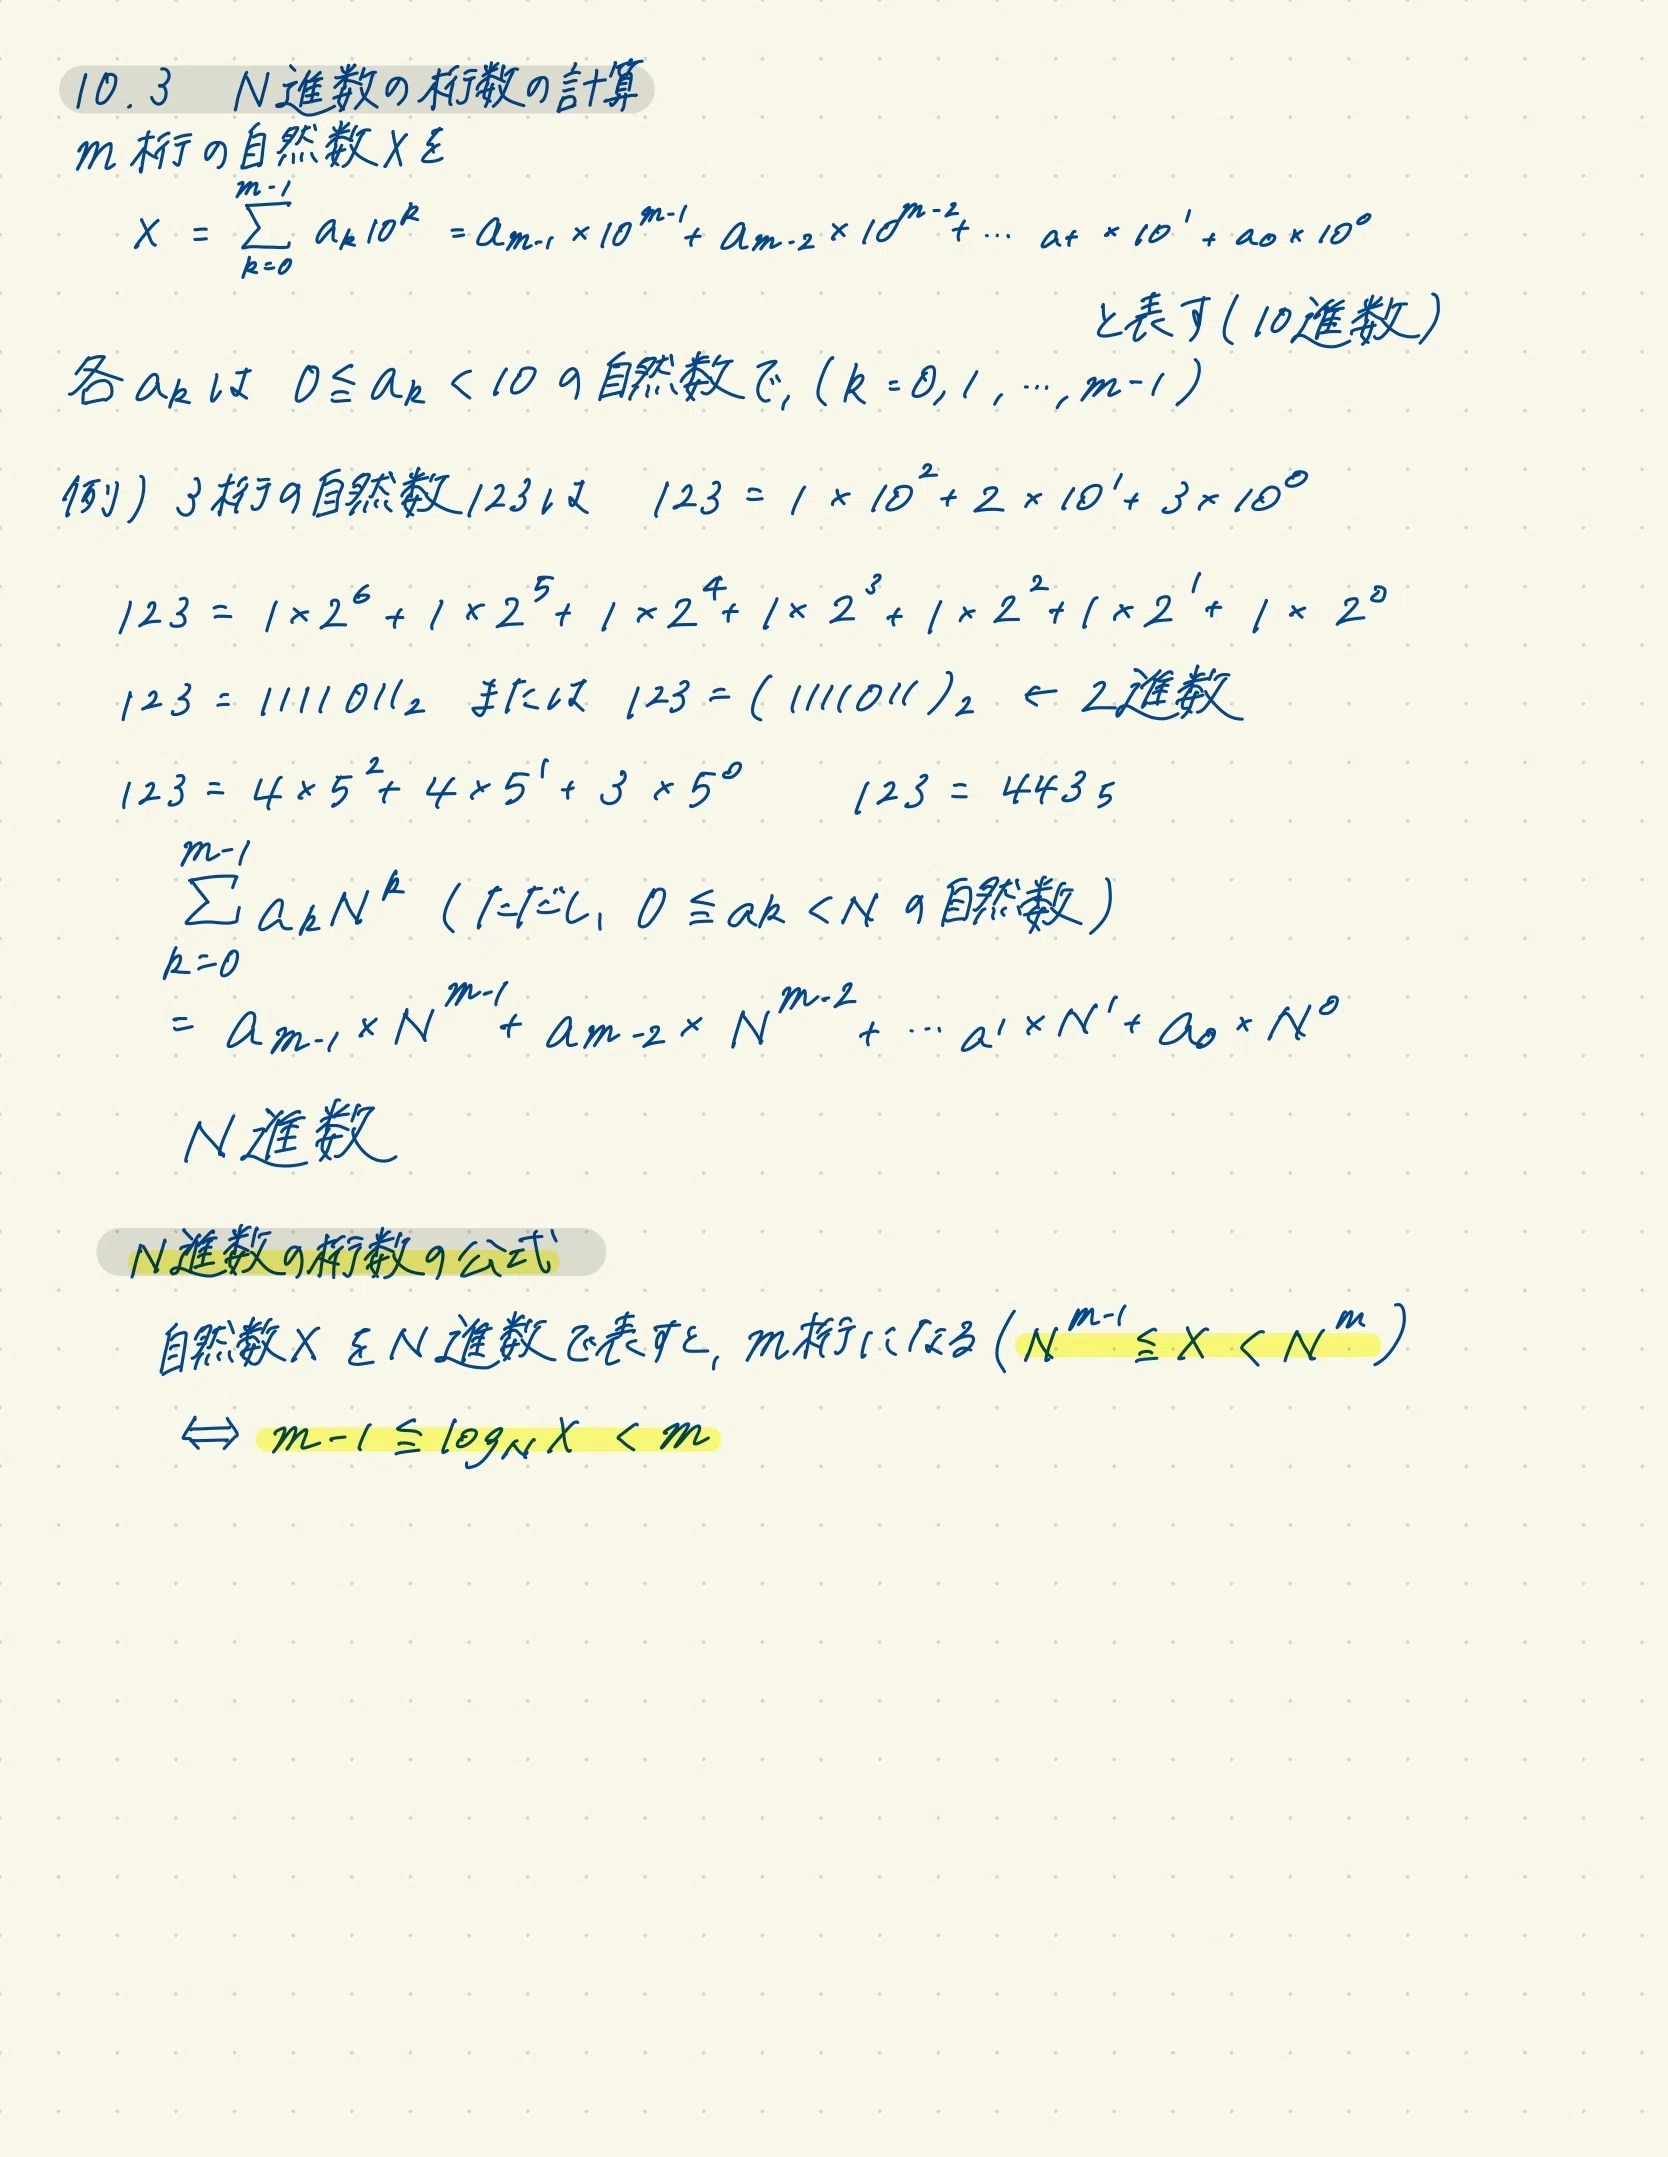 10.3 N進数の桁数の計算
m桁の自然数Xを
X = \sum_{k=0}^{m-1} a_k 10^k = a_{m-1} × 10^{m-1} + a_{m-2} × 10^{m-2} + … a_+ × 10^1 + a_0 × 10^0
と表す(10進数)
各a_kは 0 ≦ a_k < 10 の自然数で, (k = 0, 1, …, m-1)
例) 3桁の自然数123は 123 = 1 × 10^2 + 2 × 10^1 + 3 × 10^0
123 = 1 × 2^6 + 1 × 2^5 + 1 × 2^4 + 1 × 2^3 + 1 × 2^2 + 1 × 2^1 + 1 × 2^0
123 = 1111011_2 または 123 = (1111011)_2 ← 2進数
123 = 4 × 5^2 + 4 × 5^1 + 3 × 5^0 123 = 443_5
\sum_{k=0}^{m-1} a_k N^k (ただし, 0 ≦ ak < N の自然数)
= a_{m-1} × N^{m-1} + a_{m-2} × N^{m-2} + … a' × N^1 + a_0 × N^0
N進数
N進数の桁数の公式
自然数XをN進数で表すと, m桁になる (N^{m-1} ≦ X < N^m)
⟺ m-1 ≦ log_N X < m